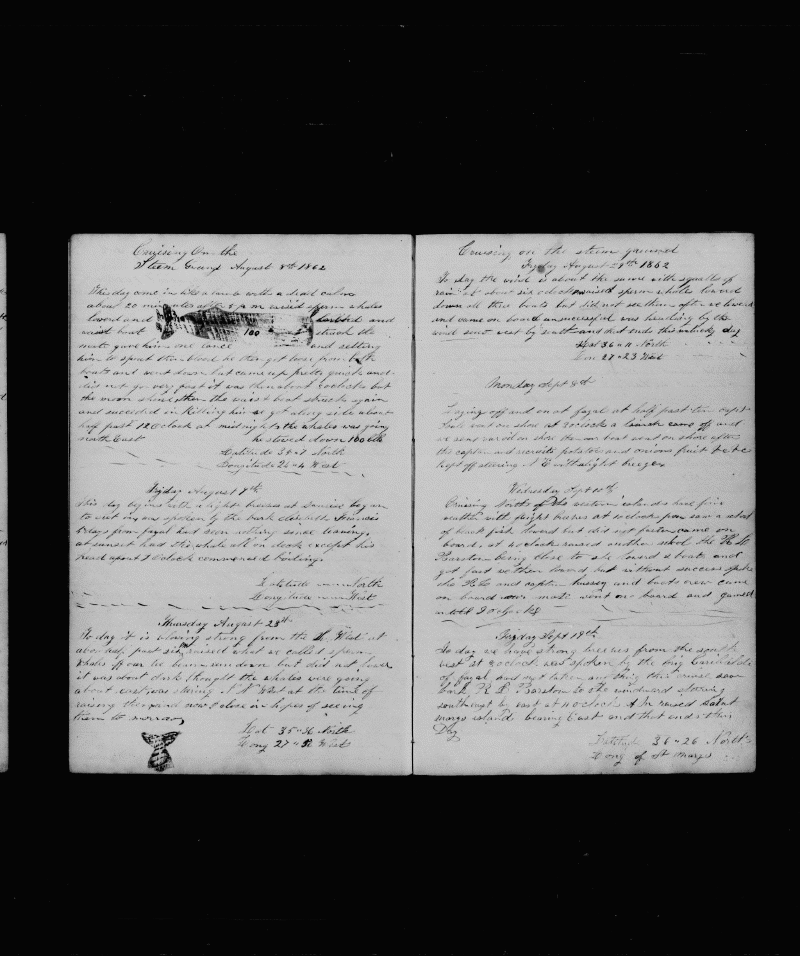 Cruising On the
Steem Ground August 8th 1862
this day come in with a dead calm
about 20 minutes after 5 p m raised sperm whales
lowed and lowered and
waist boat 100 struck the
mate gave him one lance and setting
him to spout thin blood he then got loose from both
boats and went down but came up pretty quick and
did not go very fast it was then about oclock but
the moon shined then the waist boat struck again
and succeeded in killing him got along side about
half past 12 Oclock at midnight the whales was going
north East he stowed down 100 bbls
Latitude North
Longitude West
Fryday August 9th
this day begins with a light breeses at sunrise began
to cut in was spoken by the bark
days from fayal had seen nothing since leaving
at sunset had the whale all on deck except his
head about Oclock commenced boiling
Latitude North
Longitude West
Thursday August 28th
To day it is blowing strong from the West at
about half past six raised what we called sperm
whales off our lee beam sundown but did not lower
it was about dark thought the whales were going
about east was stering N W West at the time of
raising them and now close in hopes of seeing
them to morrow
Lat 35 " 36 North
Long 27 " West
Cruising on the steem ground
Fryday August 29th 1862
To day the wind is about the same with squalls of
rain at about six oclock raised sperm whales lowed
down all three boats but did not
and came on board unsuccessful was heading by the
wind south west by south and that ends this unlucky day
Lat 36 " 11 North
Lon 27 " 23 West
Monday Sept 8th
Laying off and on at fayal at half past ten capt
boat went on shore at oclock a launch came off and
we sent on shore the boat went on shore after
the captain and recruits potatoes and onions fruit & etc
kept off steering N E with alight breeses
Wednesday Sept 10th
Cruising North of the western islands have fine
weather with light breeses at oclock pm saw a school
of black fish lowed but did not fasten came on
board at 4 oclock raised another school the R L
Barstow being close to she lowed boats and
got fast we then lowed but without success spoke
the R L and captain and boats crew came
on board our mate went on board and gamed
untill 9 oclock
Fryday Sept 19th
To day we have strong breeses from the south
west at oclock was spoken by the brig
of fayal and not taken any thing this cruise saw
bark R L Barstow to the windward stering
southeast by east at 4 oclock P m raised Saint
marys island bearing East and that ends this
Day
Latitude 36 " 26 North
Long of St marys